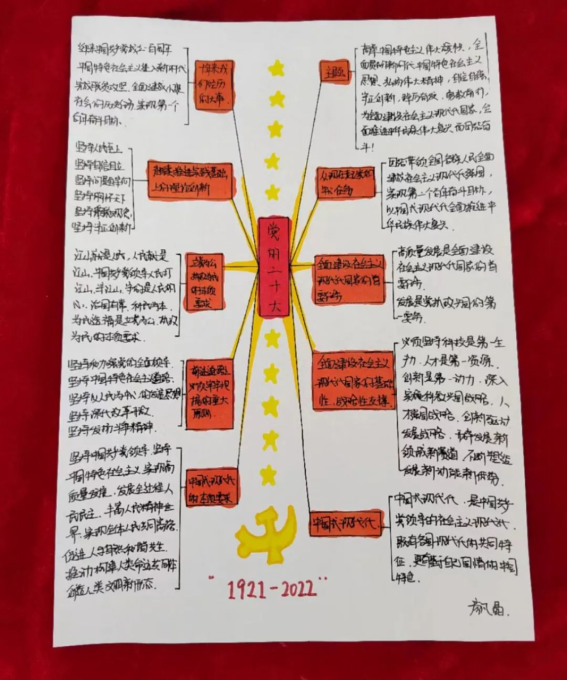 党的二十大
十年来我们经历的大事
迎来中国共产党成立一百周年
中国特色社会主义进入新时代
完成脱贫攻坚、全面建成小康
社会的历史任务,实现第一个
百年奋斗目标。
坚持人民至上
坚持自信自立
坚持守正创新
坚持问题导向
坚持系统观念
坚持胸怀天下
江山就是人民,人民就是
江山,中国共产党领导人民打
江山、守江山,守的是人民的
心,治国有常,利民为本。
坚持和加强党的全面领导
坚持中国特色社会主义道路
坚持以人民为中心的发展思想
坚持深化改革开放
坚持发扬斗争精神
中国式现代化的本质要求
坚持中国共产党领导,坚持
中国特色社会主义,实现高
质量发展,发展全过程人
民民主,丰富人民精神世
界,实现全体人民共同富裕
促进人与自然和谐共生
推动构建人类命运共同体
创造人类文明新形态。
主题
高举中国特色社会主义伟大旗帜,全
面贯彻新时代中国特色社会主义
思想,弘扬伟大建党精神,自信自强、
守正创新,踔厉奋发、勇毅前行,
为全面建设社会主义现代化国家、全
面推进中华民族伟大复兴而团结奋
斗!
团结带领全国各族人民全面
建成社会主义现代化强国、
实现第二个百年奋斗目标,
以中国式现代化全面推进中
华民族伟大复兴。
全面建设社会主义
现代化国家的首
要任务
高质量发展是全面建设
社会主义现代化国家的首
要任务
发展是党执政兴国的第
一要务。
全面建设社会主义
现代化国家的基础
性、战略性支撑
必须坚持科技是第一生
产力、人才是第一资源、
创新是第一动力,深入
实施科教兴国战略、人
才强国战略、创新驱动
发展战略,开辟发展新
领域新赛道,不断塑造
发展新动能新优势。
中国式现代化
中国式现代化,是中国共
产党领导的社会主义现代化,
既有各国现代化的共同特
征,更有基于自己国情的中国
特色。
"1921-2022"